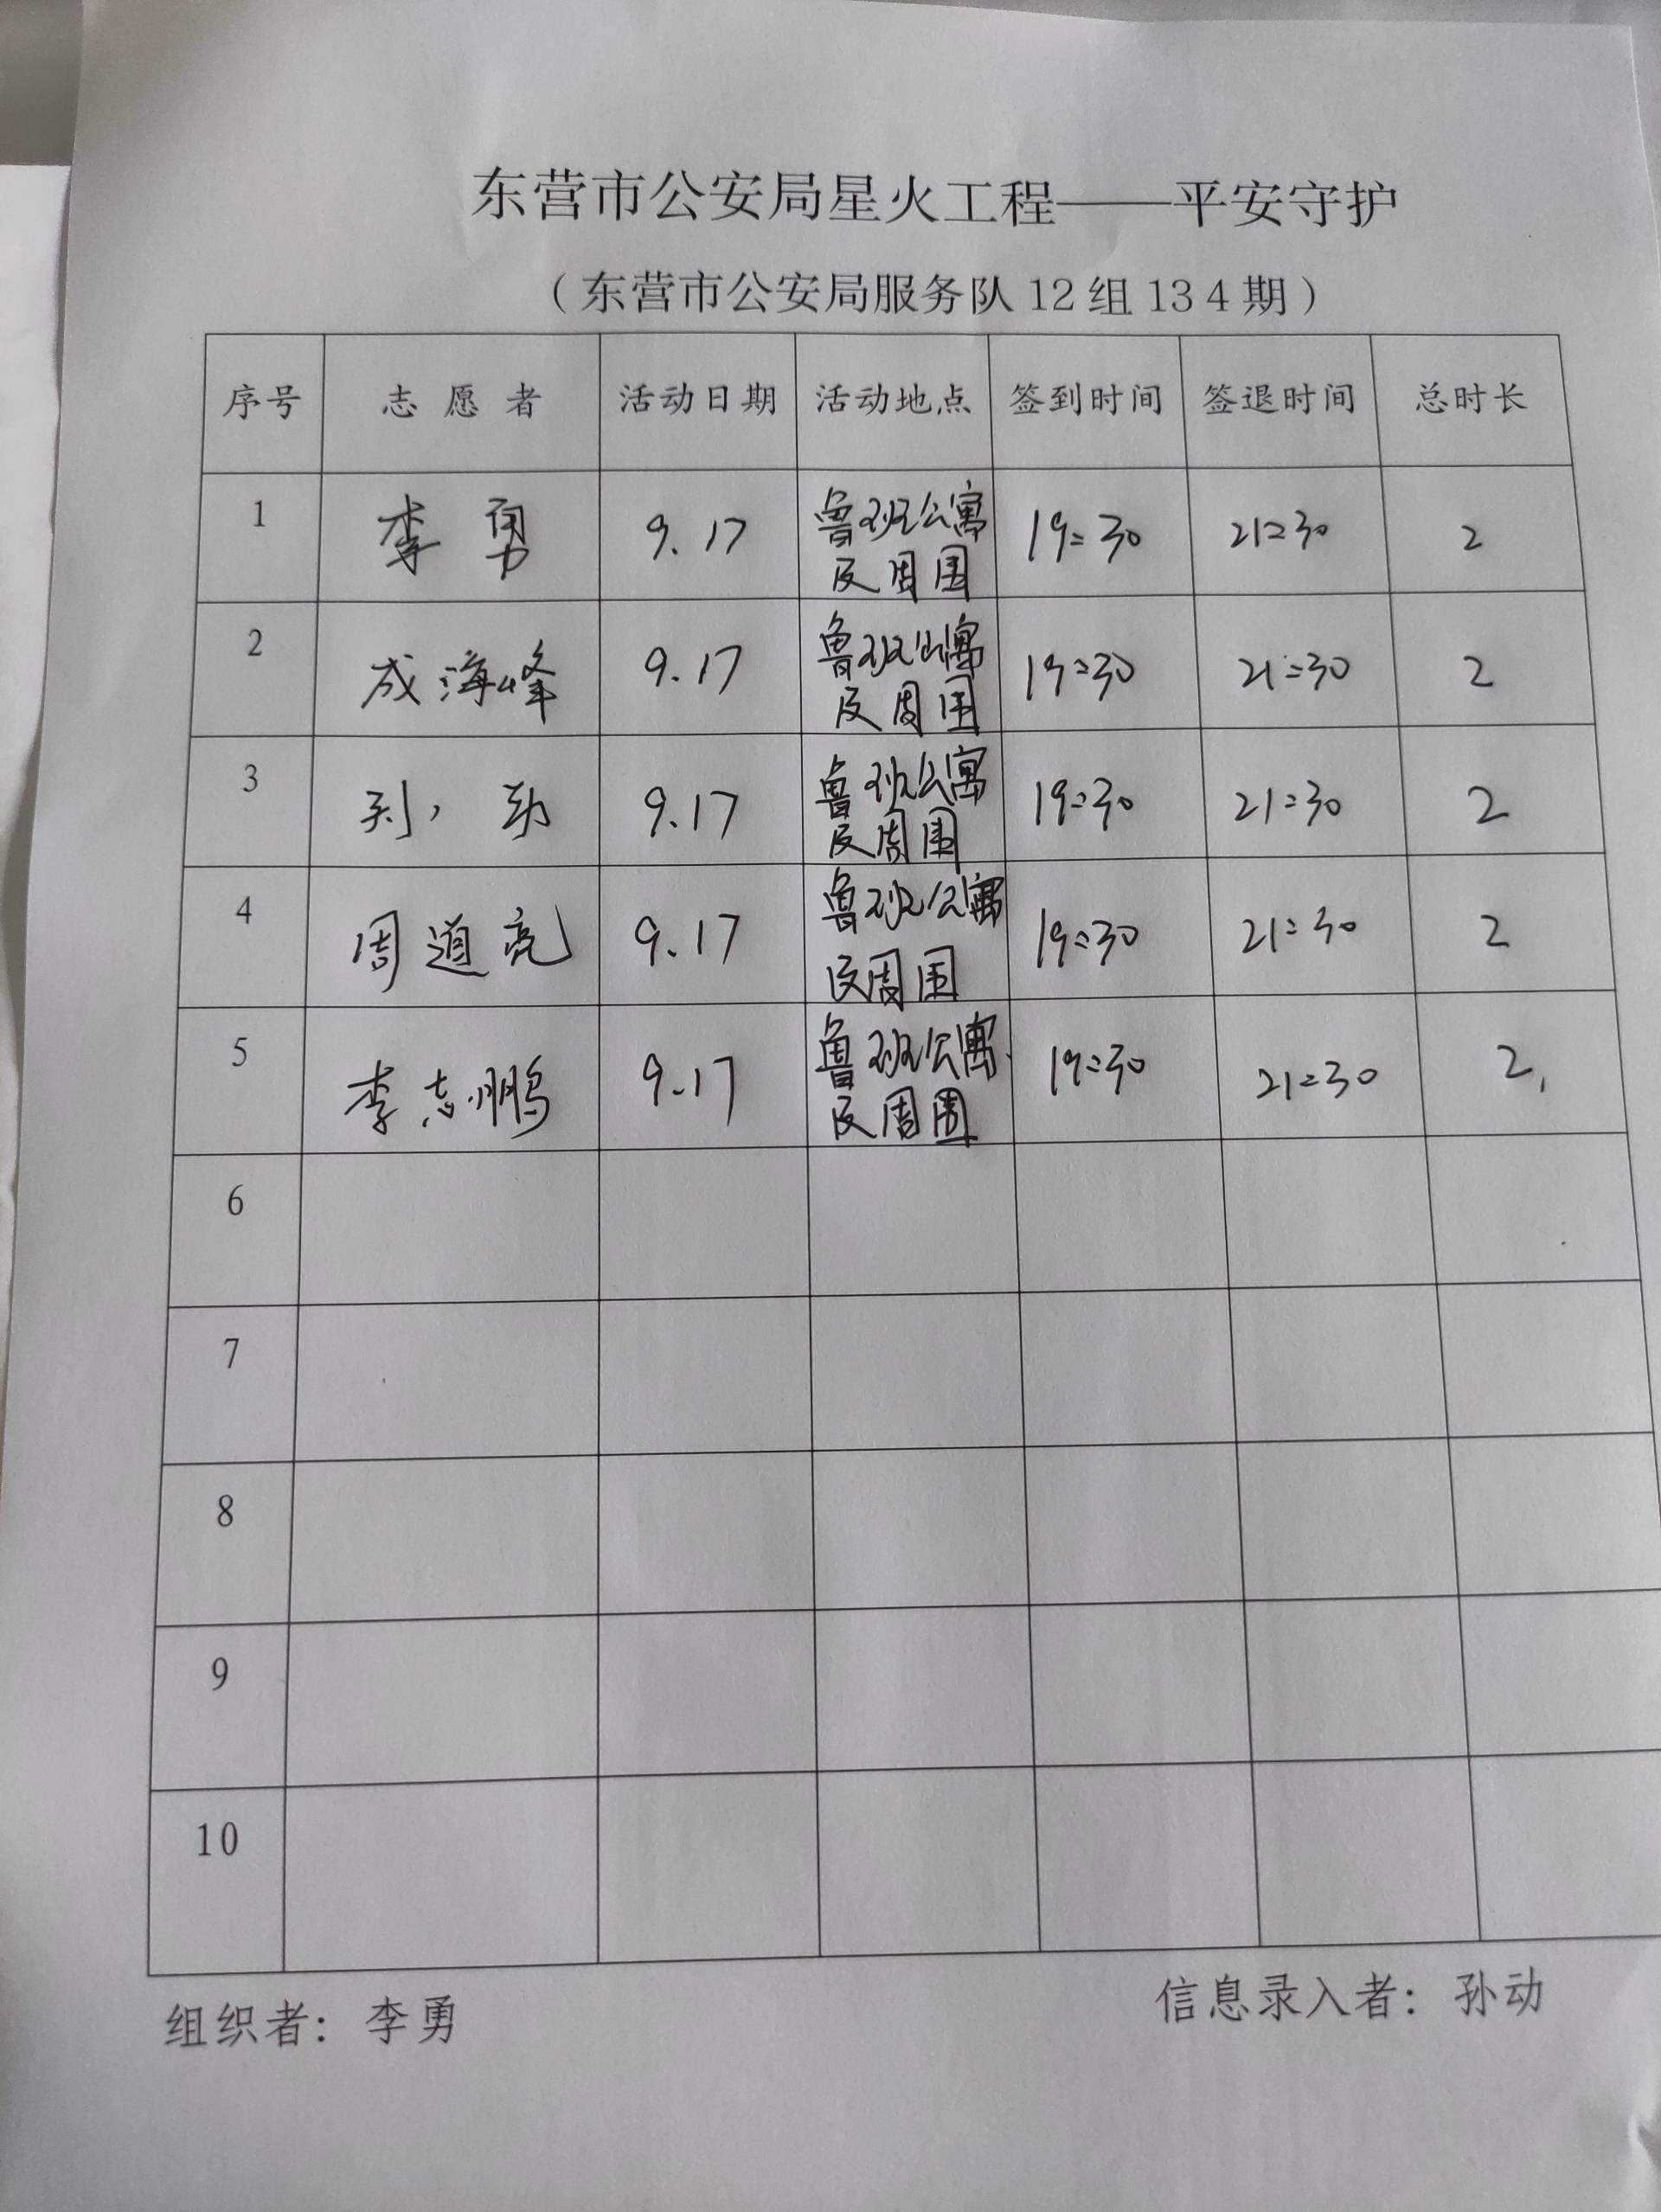 东营市公安局星火工程——平安守护
（东营市公安局服务队12组134期）
序号 志愿者 活动日期 活动地点 签到时间 签退时间 总时长
1 李勇 9.17 鲁班公寓及周围 19:30 21:30 2
2 成海峰 9.17 鲁班公寓及周围 19:30 21:30 2
3 9.17 鲁班公寓及周围 19:30 21:30 2
4 周道亮 9.17 鲁班公寓及周围 19:30 21:30 2
5 李志鹏 9.17 鲁班公寓及周围 19:30 21:30 2
6
7
8
9
10
组织者：李勇 信息录入者：孙动